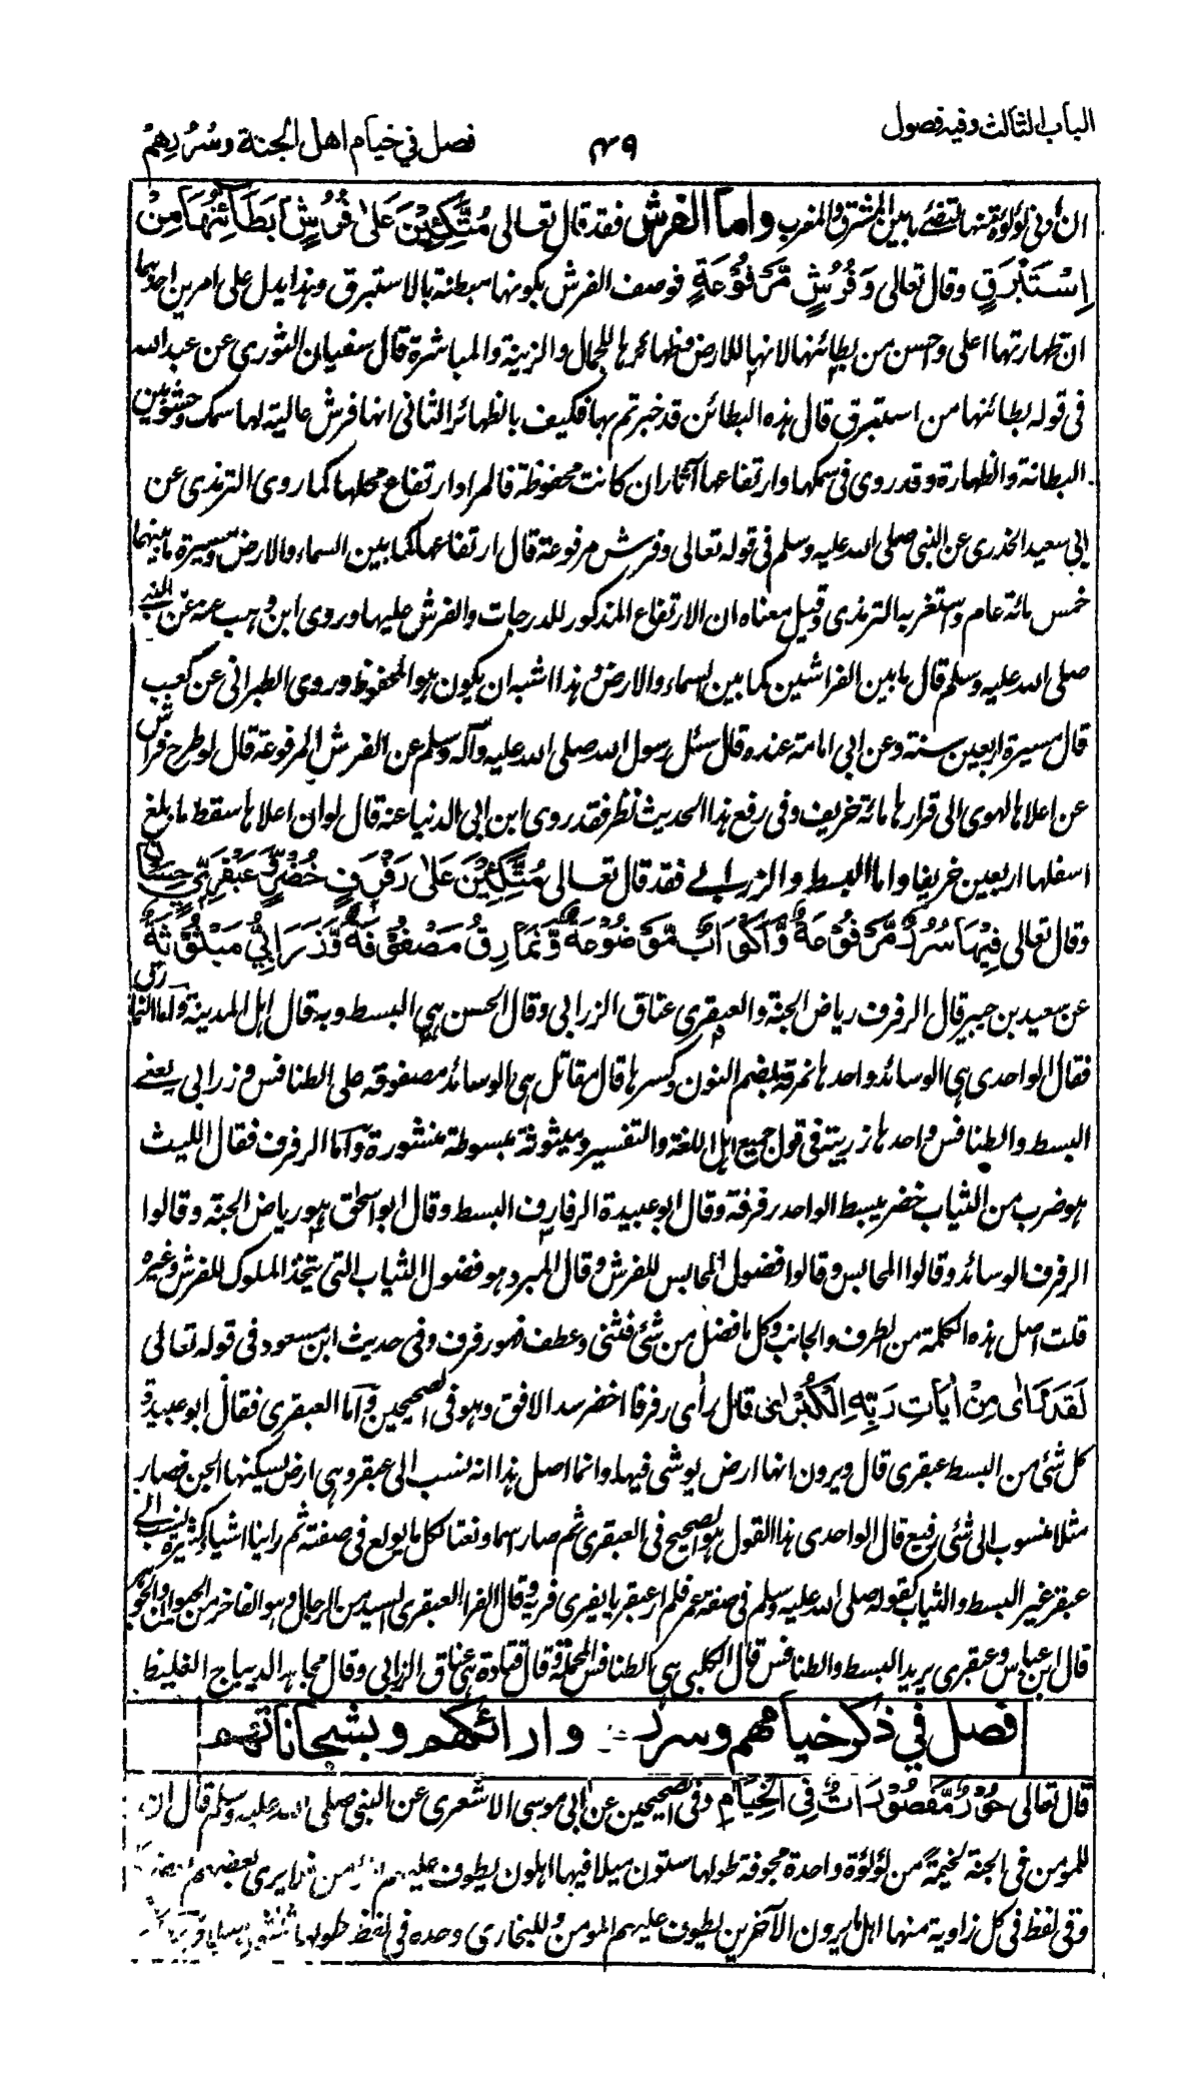 الباب الثالث وفيه فصول
٤٩
فصل في خيام اهل الجنة وسُرُرِهِمْ
ان ادنى لؤلؤة منها لتضئ ما بين المشرق والمغرب واما الفرش فقد قال تعالى مُتَّكِئِيْنَ عَلٰى فُرُشٍ بَطَآئِنُهَا مِنْ
اِسْتَبْرَقٍ وقال تعالى وَفُرُشٍ مَّرْفُوْعَةٍ فوصف الفرش بكونها مبطنة بالاستبرق وهذا يدل على امرين احدهما
ان ظهارتها اعلى واحسن من بطائنها لانها للارض وظهائرها للجمال والزينة والمباشرة قال سفيان الثوري عن عبد الله
فى قوله بطائنها من استبرق قال هذه البطائن قد خبرتم بها فكيف بالظهائر الثانى انها فرش عالية لها سمك وحشو بين
البطانة والظهارة وقد روى فى سمكها وارتفاعها آثار ان كانت محفوظة فالمراد ارتفاع محلها كما روى الترمذى عن
ابى سعيد الخدرى عن النبى صلى الله عليه وسلم فى قوله تعالى وفرش مرفوعة قال ارتفاعها كما بين السماء والارض ومسيرة ما بينهما
خمس مائة عام واستغربه الترمذى وقيل معناه ان الارتفاع المذكور للدرجات والفرش عليها وروى ابن وهب عنه عن النبى
صلى الله عليه وسلم قال ما بين الفراشين كما بين السماء والارض وهذا اشبه ان يكون هو المحفوظ وروى الطبرانى عن كعب
قال مسيرة اربعين سنة وعن ابى امامة عنده قال سئل رسول الله صلى الله عليه وآله وسلم عن الفرش المرفوعة قال لو طرح فراش
عن اعلاها لهوى الى قرارها مائة خريف وفى رفع هذا الحديث نظر فقد روى ابن ابى الدنيا عنه قال لو ان اعلاها سقط ما بلغ
اسفلها اربعين خريفا واما البسط والزرابى فقد قال تعالى مُتَّكِئِيْنَ عَلٰى رَفْرَفٍ خُضْرٍ وَّ عَبْقَرِيٍّ حِسَانٍ
وقال تعالى فِيْهَا سُرُرٌ مَّرْفُوْعَةٌ وَّاَكْوَابٌ مَّوْضُوْعَةٌ وَّنَمَارِقُ مَصْفُوْفَةٌ وَّزَرَابِيُّ مَبْثُوْثَةٌ
عن سعيد بن جبير قال الرفرف رياض الجنة والعبقرى عتاق الزرابى وقال الحسن هى البسط وبه قال اهل المدينة واما النمارق
فقال الواحدى هى الوسائد واحدها نمرقة بضم النون وكسرها قال مقاتل هى الوسائد مصفوفة على الطنافس وزرابى يعنى
البسط والطنافس واحدها زربية فى قول جميع اهل اللغة والتفسير ومبثوثة مبسوطة منشورة واما الرفرف فقال الليث
هو ضرب من الثياب خضر يبسط الواحد رفرفة وقال ابو عبيدة الرفارف البسط وقال ابو اسحاق هو رياض الجنة وقالوا
الرفرف الوسائد وقالوا المحابس وقالوا فضول المحابس للفرش وقال المبرد هو فضول الثياب التى يتخذ الملوك للفرش وغيره
قلت اصل هذه الكلمة من الطرف والجانب وكل ما فضل من شئ فثنى وعطف فهو رفرف وفى حديث ابن مسعود فى قوله تعالى
لَقَدْ رَاٰى مِنْ اٰيَاتِ رَبِّهِ الْكُبْرٰى قال رأى رفرفا اخضر سد الافق وهو فى الصحيحين واما العبقرى فقال ابو عبيدة
كل شئ من البسط عبقرى قال ويرون انها ارض يوشى فيها وانما اصل هذا انه نسب الى عبقر وهى ارض يسكنها الجن فصار
مثلا منسوب الى شئ رفيع قال الواحدى هذا القول هو الصحيح فى العبقرى ثم صار اسما ونعتا لكل ما يولع فى صفته ثم راينا اشياء كثيرة ينسب الى
عبقر غير البسط والثياب كقوله صلى الله عليه وسلم فى صفة عمر فلم ار عبقريا يفرى فريه وقال الفرا العبقرى السيد من الرجال وهو الفاخر من الحيوان والجوهر
قال ابن عباس وعبقرى يريد البسط والطنافس قال الكلبى هى الطنافس المخملة قال قتادة هى عتاق الزرابى وقال مجاهد الديباج الغليظ
فصل في ذكر خيامهم وسرر وارائكهم وبشخاناتهم
قال تعالى حُوْرٌ مَّقْصُوْرَاتٌ فِى الْخِيَامِ وفى الصحيحين عن ابى موسى الاشعرى عن النبى صلى الله عليه وسلم قال ان
للمومن فى الجنة لخيمة من لؤلؤة واحدة مجوفة طولها ستون ميلا فيها اهلون يطوف عليهم المؤمن فلا يرى بعضهم بعضا
وفى لفظ فى كل زاوية منها اهل ما يرون الآخرين يطوف عليهم المومن وللبخارى وحده فى لفظ طولها